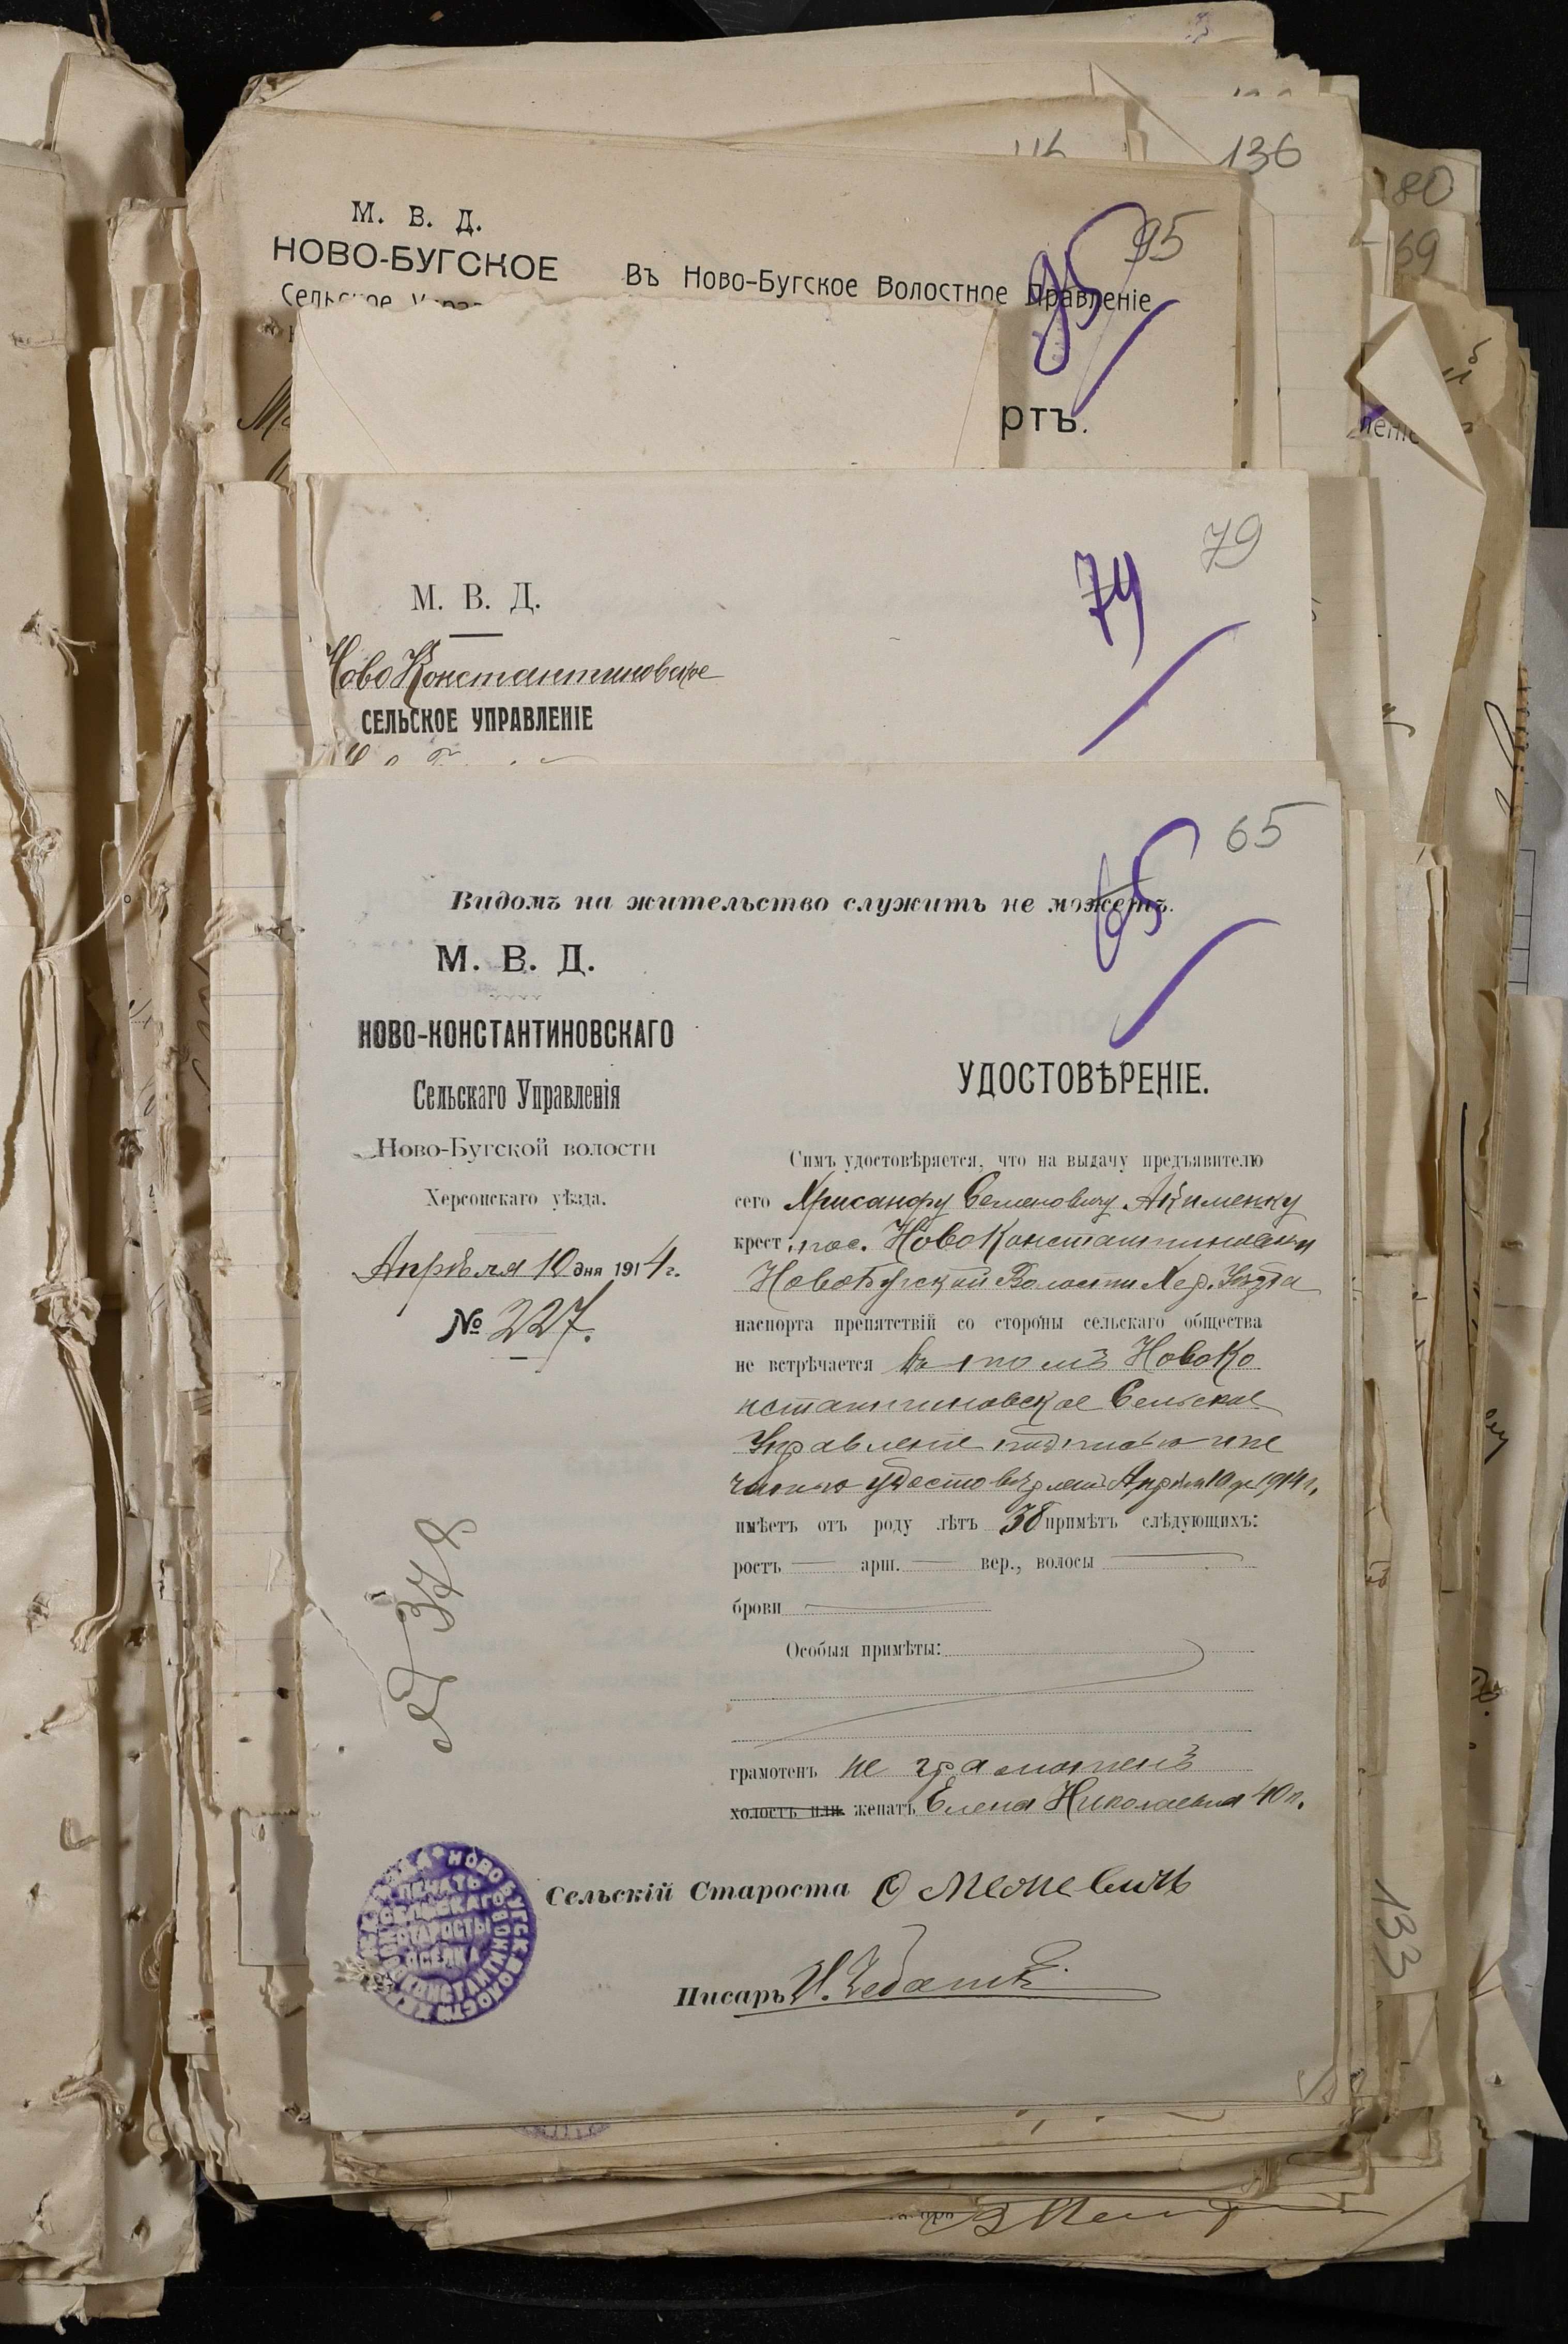 136
80
69
М. В. Д.
НОВО-БУГСКОЕ
Въ Ново-Бугское Волостное Правленіе
95
95
ртъ.
79
79
М. В. Д.
Ново Константиновское
СЕЛЬСКОЕ УПРАВЛЕНІЕ
65
65
Видомъ на жительство служить не можетъ.
М. В. Д.
НОВО-КОНСТАНТИНОВСКАГО
Сельскаго Управленія
Ново-Бугской волости
Херсонскаго уѣзда.
Апрѣля 10 дня 1914 г.
№ 227.
УДОСТОВѢРЕНІЕ.
Симъ удостовѣряется, что на выдачу предъявителю
сего Хрисанфу Семеновичу Акименку
крест. пос. НовоКонстантиновки
НовоБугской Волости Хер. Уезда
паспорта препятствій со стороны сельскаго общества
не встрѣчается въ томъ НовоКо
нстантиновское Сельское
Управленіе подписью и пе
чатью Апрѣля 10 дн 1914 г.
имѣетъ отъ роду лѣтъ 38 примѣтъ слѣдующихъ:
ростъ арш. вер., волосы
брови
Особыя примѣты:
грамотенъ не грамотенъ
холостъ или женатъ Елена Николаевна 40 л.
Сельскій Староста
Писарь
133